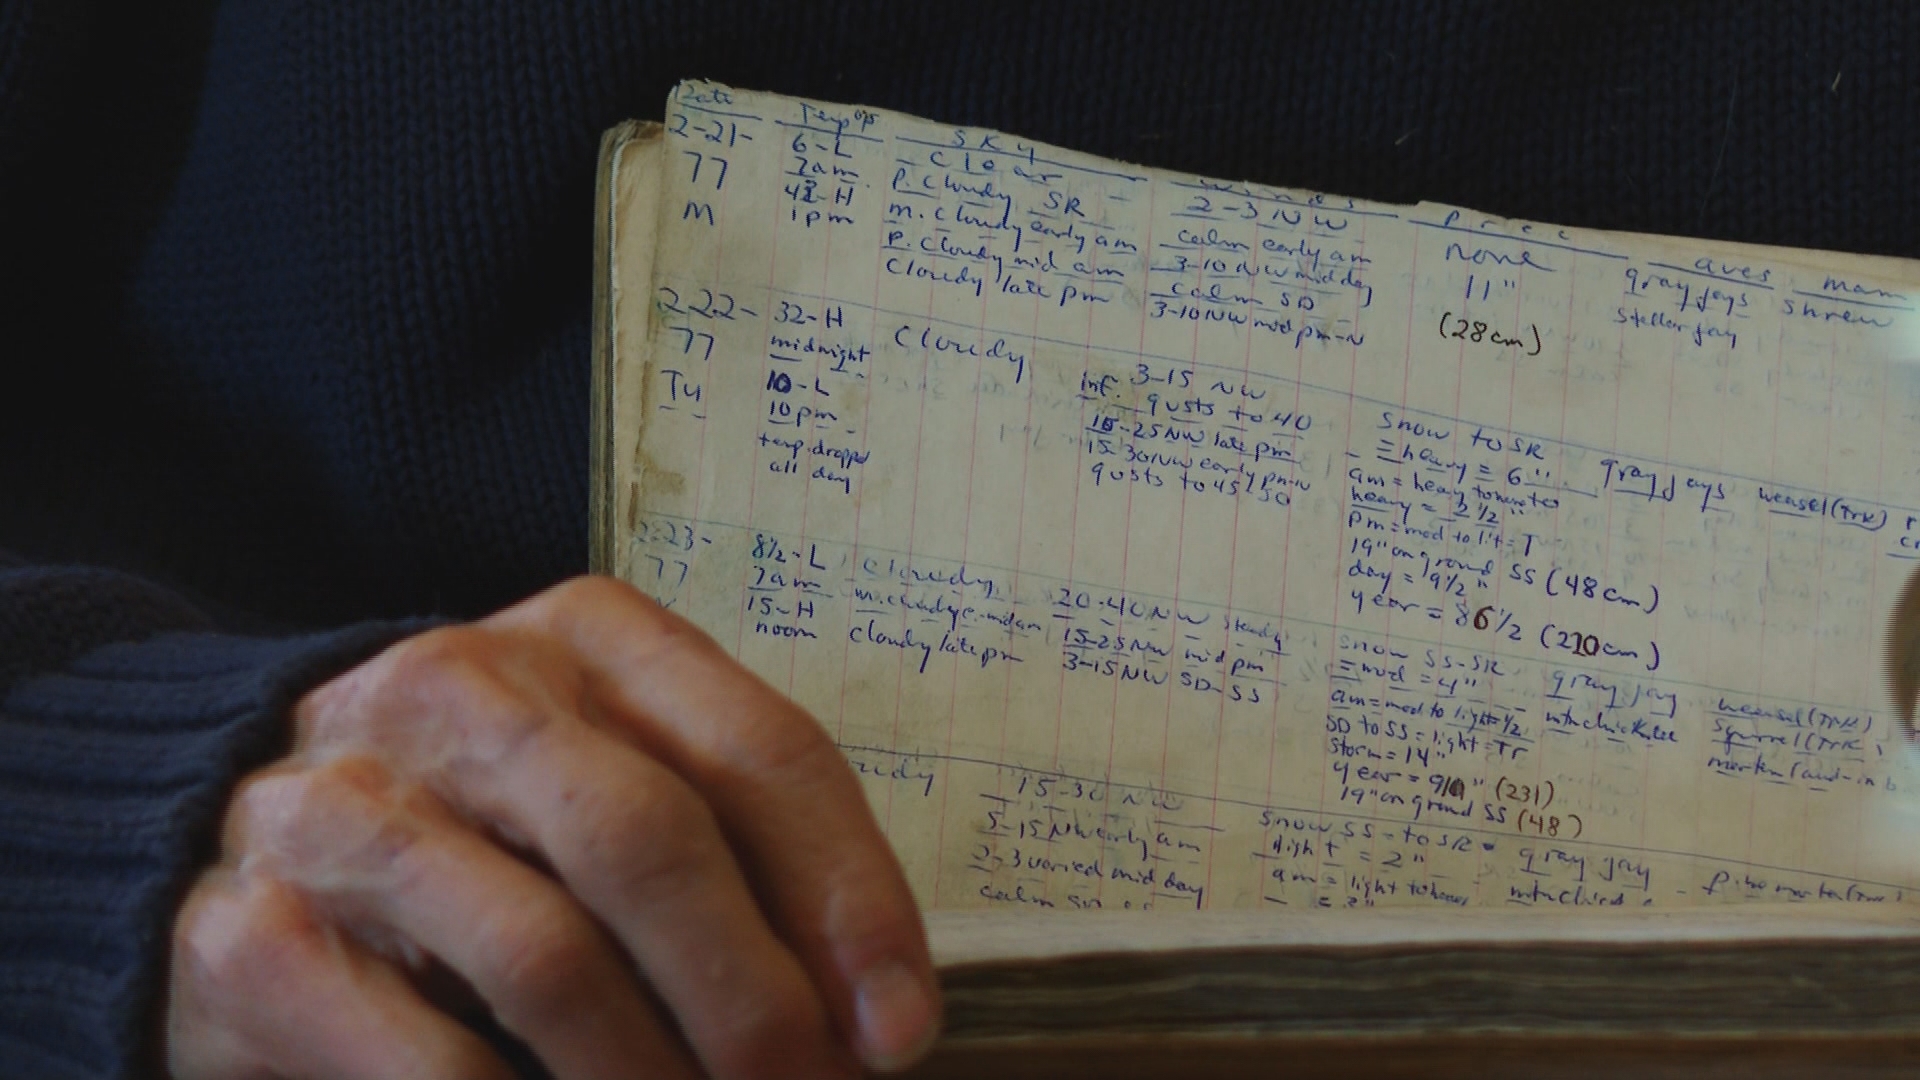 Date Temp ops Sky Winds Prec aves mam
2-21- 6-L Clear 2-3 NW none gray jays shrew
77 7am P. Cloudy SR calm early am 11" Stellar jay
M 42-H m. Cloudy early am 3-10 NW mid day (28cm)
1pm P. Cloudy mid am calm SD
Cloudy late pm 3-10 NW mid pm-N
2-22- 32-H Cloudy 3-15 NW Snow to SR gray jays weasel (Trk)
77 midnight inf. gusts to 40 = heavy = 6"
Tu 10-L 10-25 NW late pm am = heavy to
10pm 15-30 NW early pm-N heavy = 2 1/2"
temp. dropped gusts to 45-50 pm = mod to lit = T
all day 19" on ground SS (48cm)
day = 9 1/2"
year = 86 1/2 (220cm)
2-23- 8 1/2-L Cloudy 20-40 NW steady snow SS-SR gray jay weasel (Trk)
77 7am m. cloudy e.-mid am 15-25 NW mid pm = mod = 4" mtn chickadee squirrel (Trk)
15-H cloudy late pm 3-15 NW SD-SS am = mod to light = 1/2 marten
noon SD to SS = light = Tr
Storm = 14"
year = 91" (231)
19" on ground SS (48)
15-30 NW Snow SS-to SR gray jay
5-15 NW early am light = 2" mtn chick
2-3 varied mid day am = light to
calm